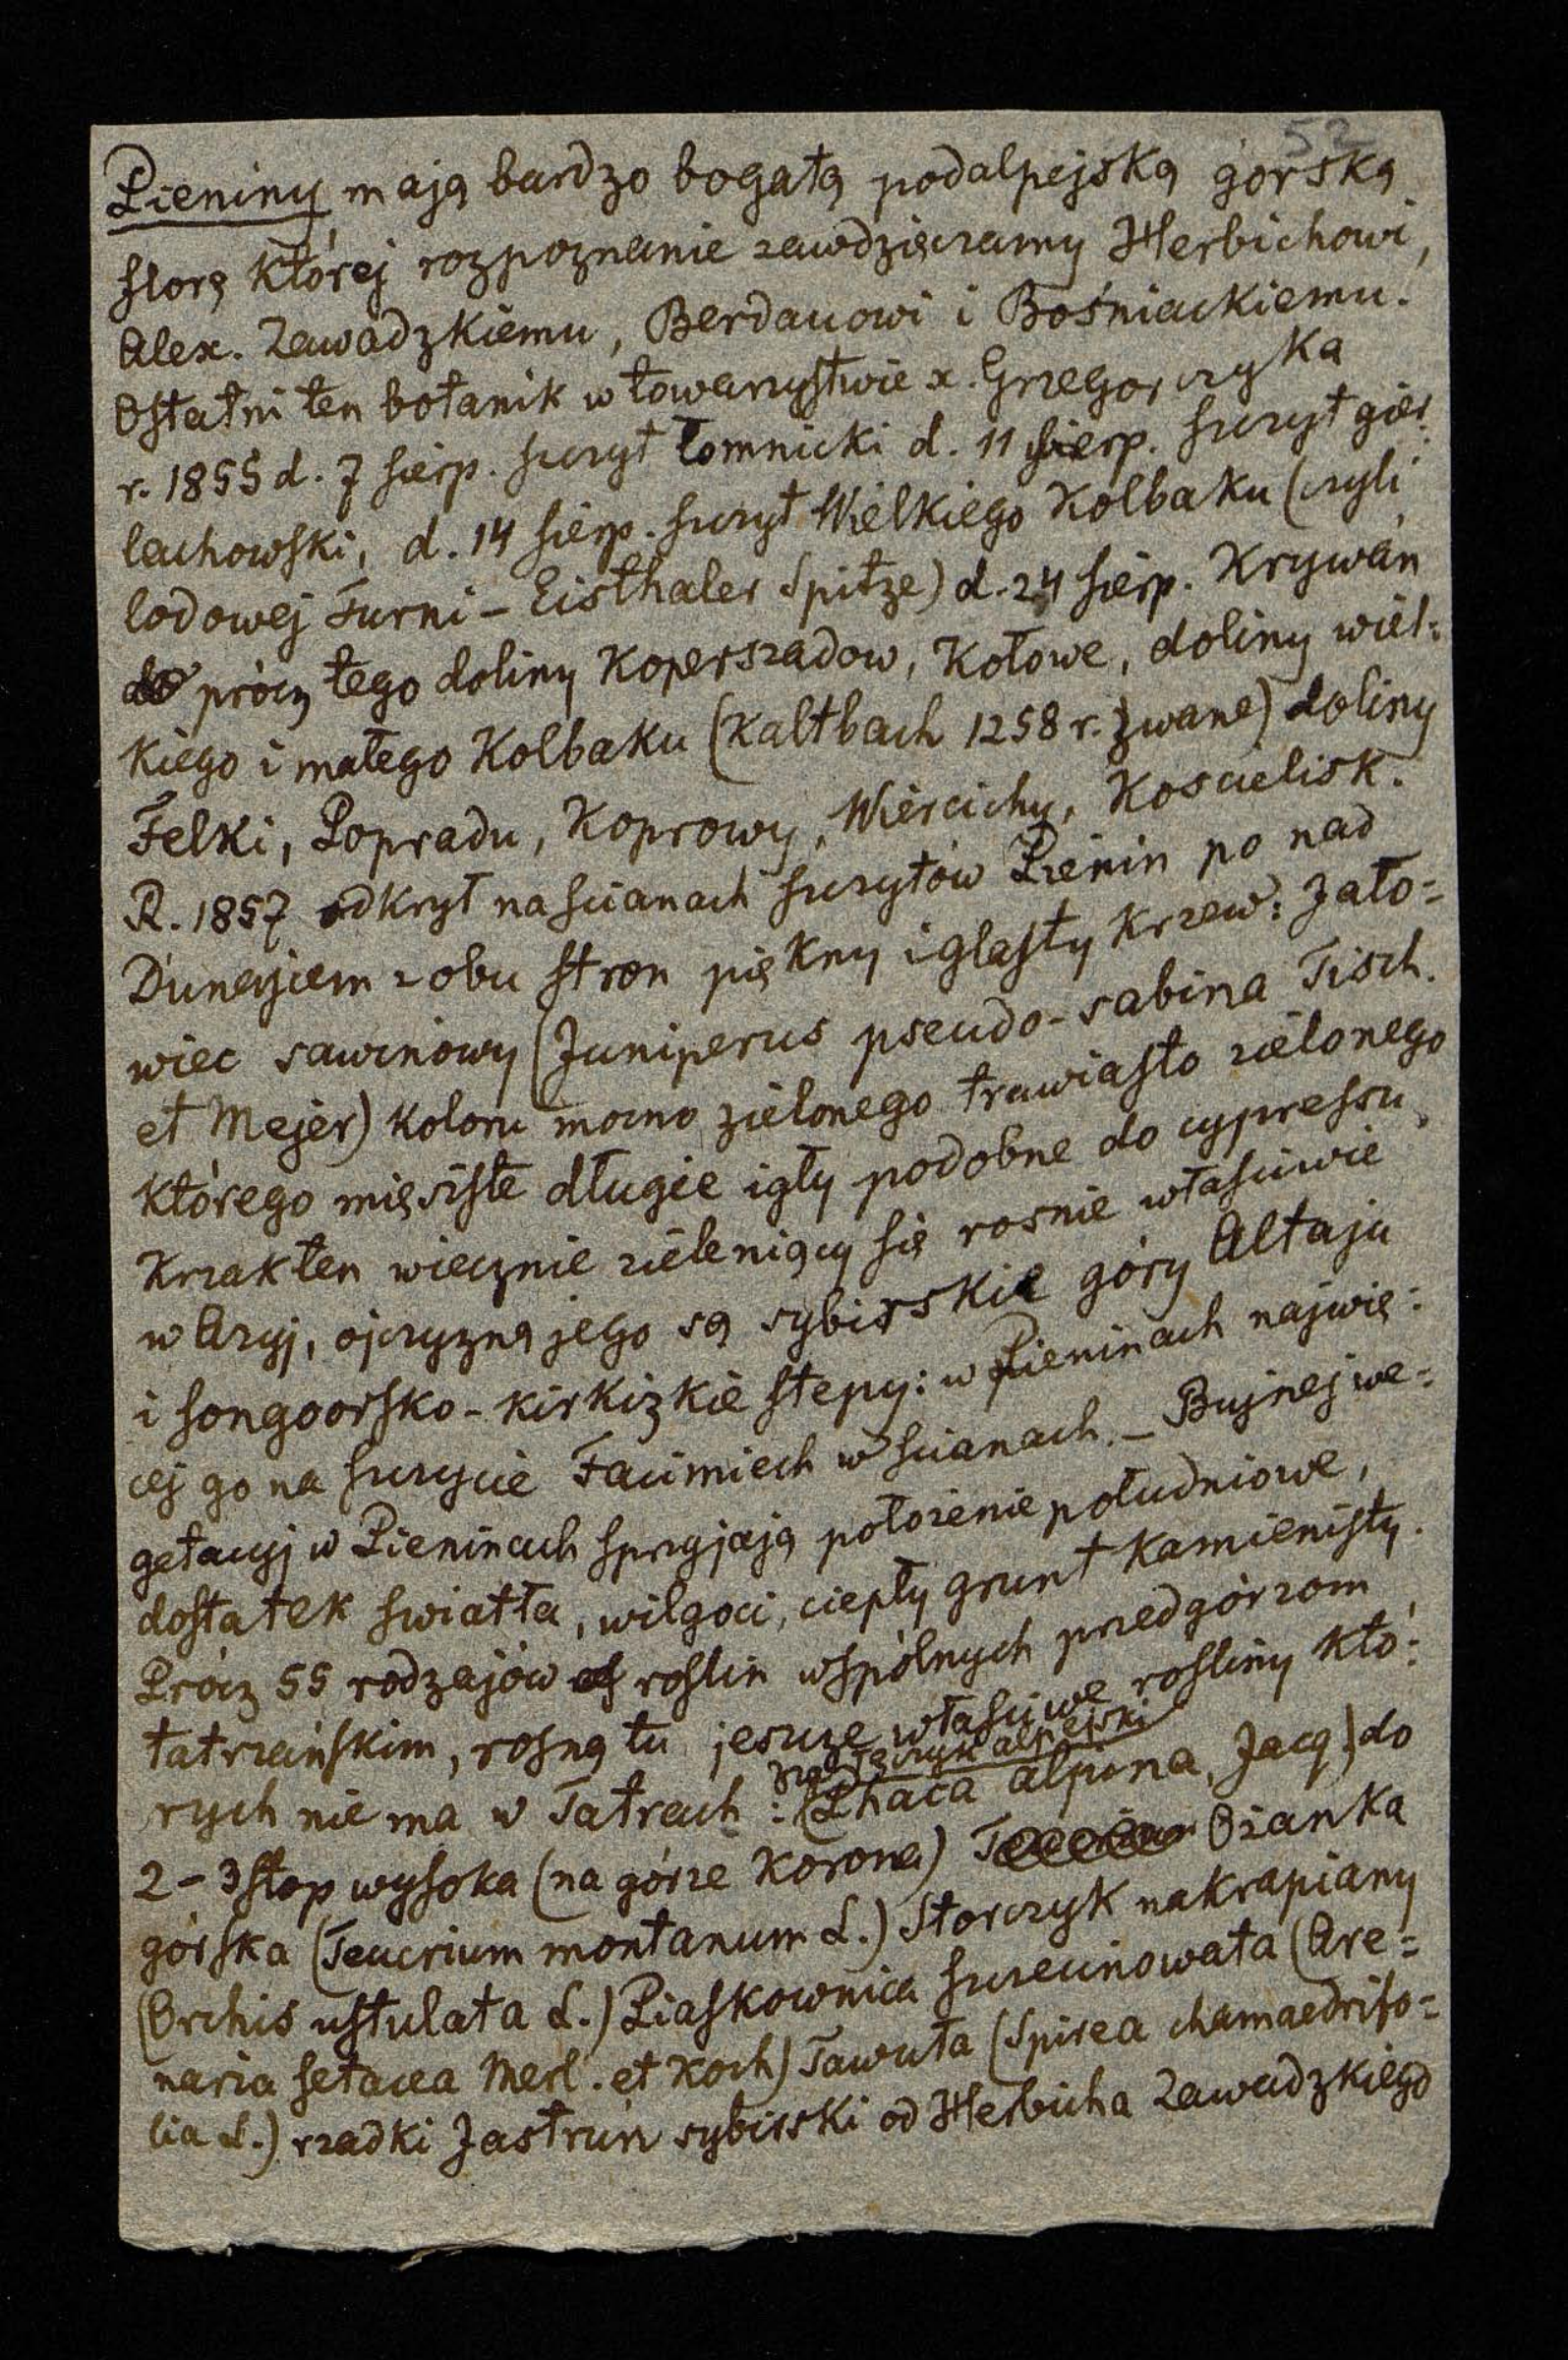 52
Pieniny mają bardzo bogatą podalpejską górską
florę której rozpoznanie zawdzięczamy Herbichowi,
Alex. Zawadzkiemu, Berdauowi i Bośniackiemu.
Ostatni ten botanik w towarzystwie x. Grzegorczyka
r. 1855 d. 7 sierp. szczyt Łomnicki d. 11 sierp. szczyt gier=
lachowski, d. 14 sierp. szczyt Wielkiego Kolbaku (czyli
lodowej Turni – Eisthaler Spitze) d. 24 sierp. Krywań
prócz tego doliny Koperszadow, Kołowe, doliny wiel=
kiego i małego Kolbaku (Kaltbach 1258 r. zwane) doliny
Felki, Popradu, Koprowy, Wiercichy, Koscielisk.
R. 1857 odkrył na scianach szczytów Pienin po nad
Dunajcem z obu stron piękny iglasty krzew: Jało=
wiec sawinowy (Juniperus pseudo-sabina Fisch.
et Mejer) koloru mocno zielonego trawiasto zielonego
którego mięsiste długie igły podobne do cypressu,
Krzak ten wiecznie zieleniący się rosnie własciwie
w Azyj, ojczyzną jego są sybirskie góry Altaju
i songoorsko-kirkizkie stepy: w Pieninach najwię=
cej go na szczycie Facimiech w scianach. – Bujnej we=
getacyj w Pieninach sprzyjają położenie południowe,
dostatek swiatła, wilgoci, ciepły grunt kamienisty.
Prócz 55 rodzajów roslin wspólnych przedgórzom
tatrzańskim, rosną tu jeszcze własciwe rosliny któ=
alpejski
rych nie ma w Tatrach: (Phaca alpina, Jacq.) do
2–3 stop wysoka (na górze Korona) Ożanka
górska (Teucrium montanum L.) Storczyk nakrapiany
(Orchis ustulata L.) Piaskownica szczecinowata (Are=
naria setacea Merl. et Koch) Tawuła (Spirea chamaedrifo=
lia L.) rzadki Jastrun sybirski od Herbicha Zawadzkiego